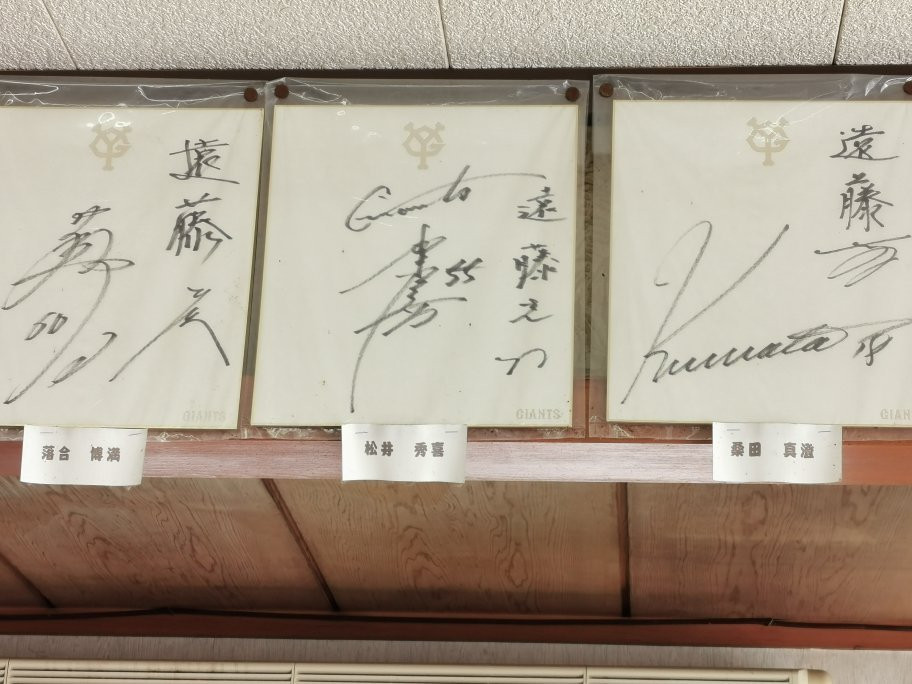 遠藤
60
GIANTS
落合 博満
Giants
55
遠藤
GIANTS
松井 秀喜
遠藤
Kuwata 18
GIAN
桑田 真澄